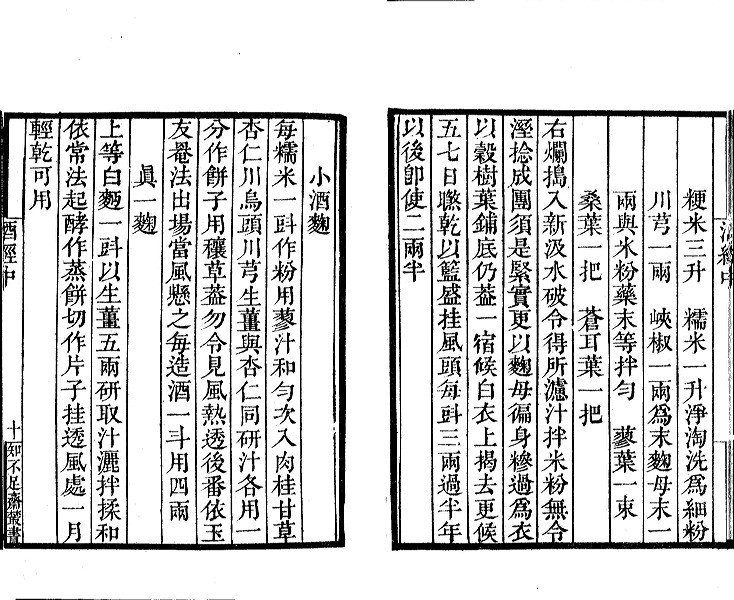 粳米三升　糯米一升淨淘洗爲細粉
川芎一兩　峽椒一兩爲末麴母末一
兩與米粉藥末等拌勻　蓼葉一束
桑葉一把　蒼耳葉一把
右爛搗入新汲水破令得所濾汁拌米粉無令
溼捻成團須是緊實更以麴母徧身糝過爲衣
以穀樹葉鋪底仍葢一宿候白衣上揭去更候
五七日曬乾以籃盛挂風頭每㪷三兩過半年
以後卽使二兩半
酒經中
小酒麴
每糯米一㪷作粉用蓼汁和勻次入肉桂甘草
杏仁川烏頭川芎生薑與杏仁同研汁各用一
分作餅子用穰草葢勿令見風熱透後番依玉
友罨法出場當風懸之每造酒一斗用四兩
眞一麴
上等白麪一㪷以生薑五兩研取汁灑拌揉和
依常法起酵作蒸餅切作片子挂透風處一月
輕乾可用
酒經中
十
知不足齋叢書